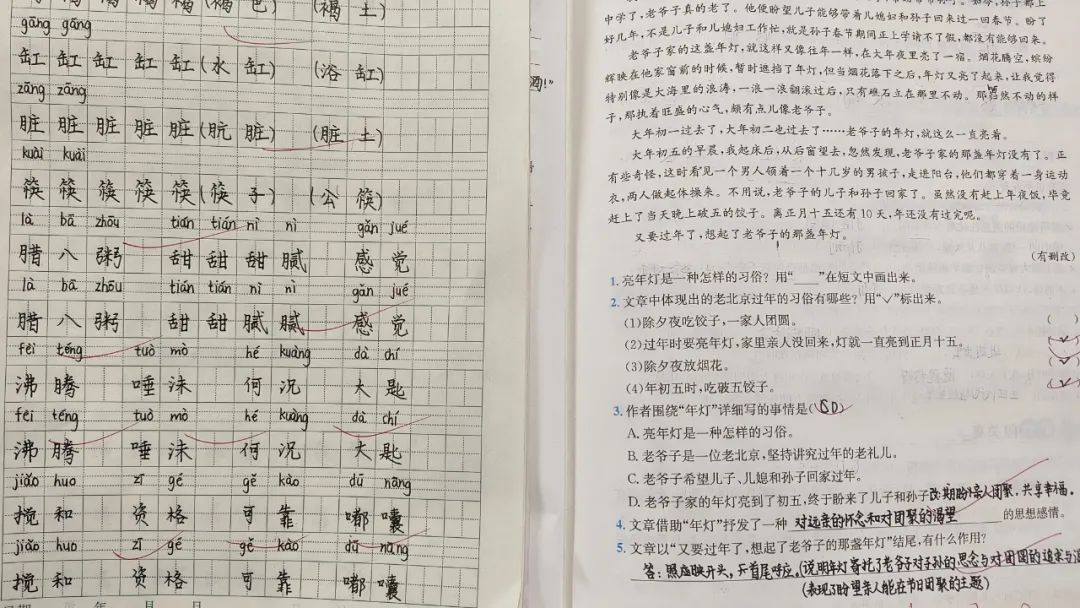 褐 褐 褐 褐 (褐 色) (褐 土)
gāng gāng
缸 缸 缸 缸 缸 (水 缸) (浴 缸)
zāng zāng
脏 脏 脏 脏 脏 (肮 脏) (脏 土)
kuài kuài
筷 筷 筷 筷 筷 (筷 子) (公 筷)
là bā zhōu tián tián nì nì gǎn jué
腊 八 粥 甜 甜 甜 腻 感 觉
là bā zhōu tián tián nì nì gǎn jué
腊 八 粥 甜 甜 腻 腻 感 觉
fèi téng tuò mò hé kuàng dà chí
沸 腾 唾 沫 何 况 大 匙
fèi téng tuò mò hé kuàng dà chí
沸 腾 唾 沫 何 况 大 匙
jiǎo huo zī gé kě kào dū nāng
搅 和 资 格 可 靠 嘟 囔
jiǎo huo zī gé kě kào dū nāng
搅 和 资 格 可 靠 嘟 囔
年 月 日
中学了，老爷子真的老了。他便盼望儿子能够带着儿媳妇和孙子回来过一回春节。盼了
好几年，不是儿子和儿媳妇工作忙，就是孙子春节期间正上学请不了假，都没有能够回来。
老爷子家的这盏年灯，就这样又像往年一样，在大年夜里亮了一宿。烟花腾空，缤纷
辉映在他家窗前的时候，暂时遮挡了年灯，但当烟花落下之后，年灯又亮了起来，让我觉得
特别像是大海里的浪涛，一浪一浪翻滚过后，只有礁石立在那里不动。那岿然不动的样
子，那执着旺盛的心气，颇有点儿像老爷子。
大年初一过去了，大年初二也过去了……老爷子的年灯，就这么一直亮着。
大年初五的早晨，我起床后，从后窗望去，忽然发现，老爷子家的那盏年灯没有了。正
有些奇怪，这时看见一个男人领着一个十几岁的男孩子，走进阳台，他们都穿着一身运动
衣，两人做起体操来。不用说，老爷子的儿子和孙子回家了。虽然没有赶上年夜饭，毕竟
赶上了当天晚上破五的饺子。离正月十五还有10天，年还没有过完呢。
又要过年了，想起了老爷子的那盏年灯。
(有删改)
1. 亮年灯是一种怎样的习俗？用“____”在短文中画出来。
2. 文章中体现出的老北京过年的习俗有哪些？用“✓”标出来。
(1)除夕夜吃饺子，一家人团圆。 ( )
(2)过年时要亮年灯，家里亲人没回来，灯就一直亮到正月十五。 (✓)
(3)除夕夜放烟花。 (✓)
(4)年初五时，吃破五饺子。 (✓)
3. 作者围绕“年灯”详细写的事情是(BD)
A. 亮年灯是一种怎样的习俗。
B. 老爷子是一位老北京，坚持讲究过年的老礼儿。
C. 老爷子希望儿子、儿媳和孙子回家过年。
D. 老爷子家的年灯亮到了初五，终于盼来了儿子和孙子
期盼亲人团聚，共享幸福。
4. 文章借助“年灯”抒发了一种 对远亲的怀念和对团聚的渴望 的思想感情。
5. 文章以“又要过年了，想起了老爷子的那盏年灯”结尾，有什么作用？
答：照应映开头，首尾呼应。(说明年灯寄托了老爷子对子孙的思念与对团圆的追求与
(表现了盼望亲人能在节日团聚的主题)